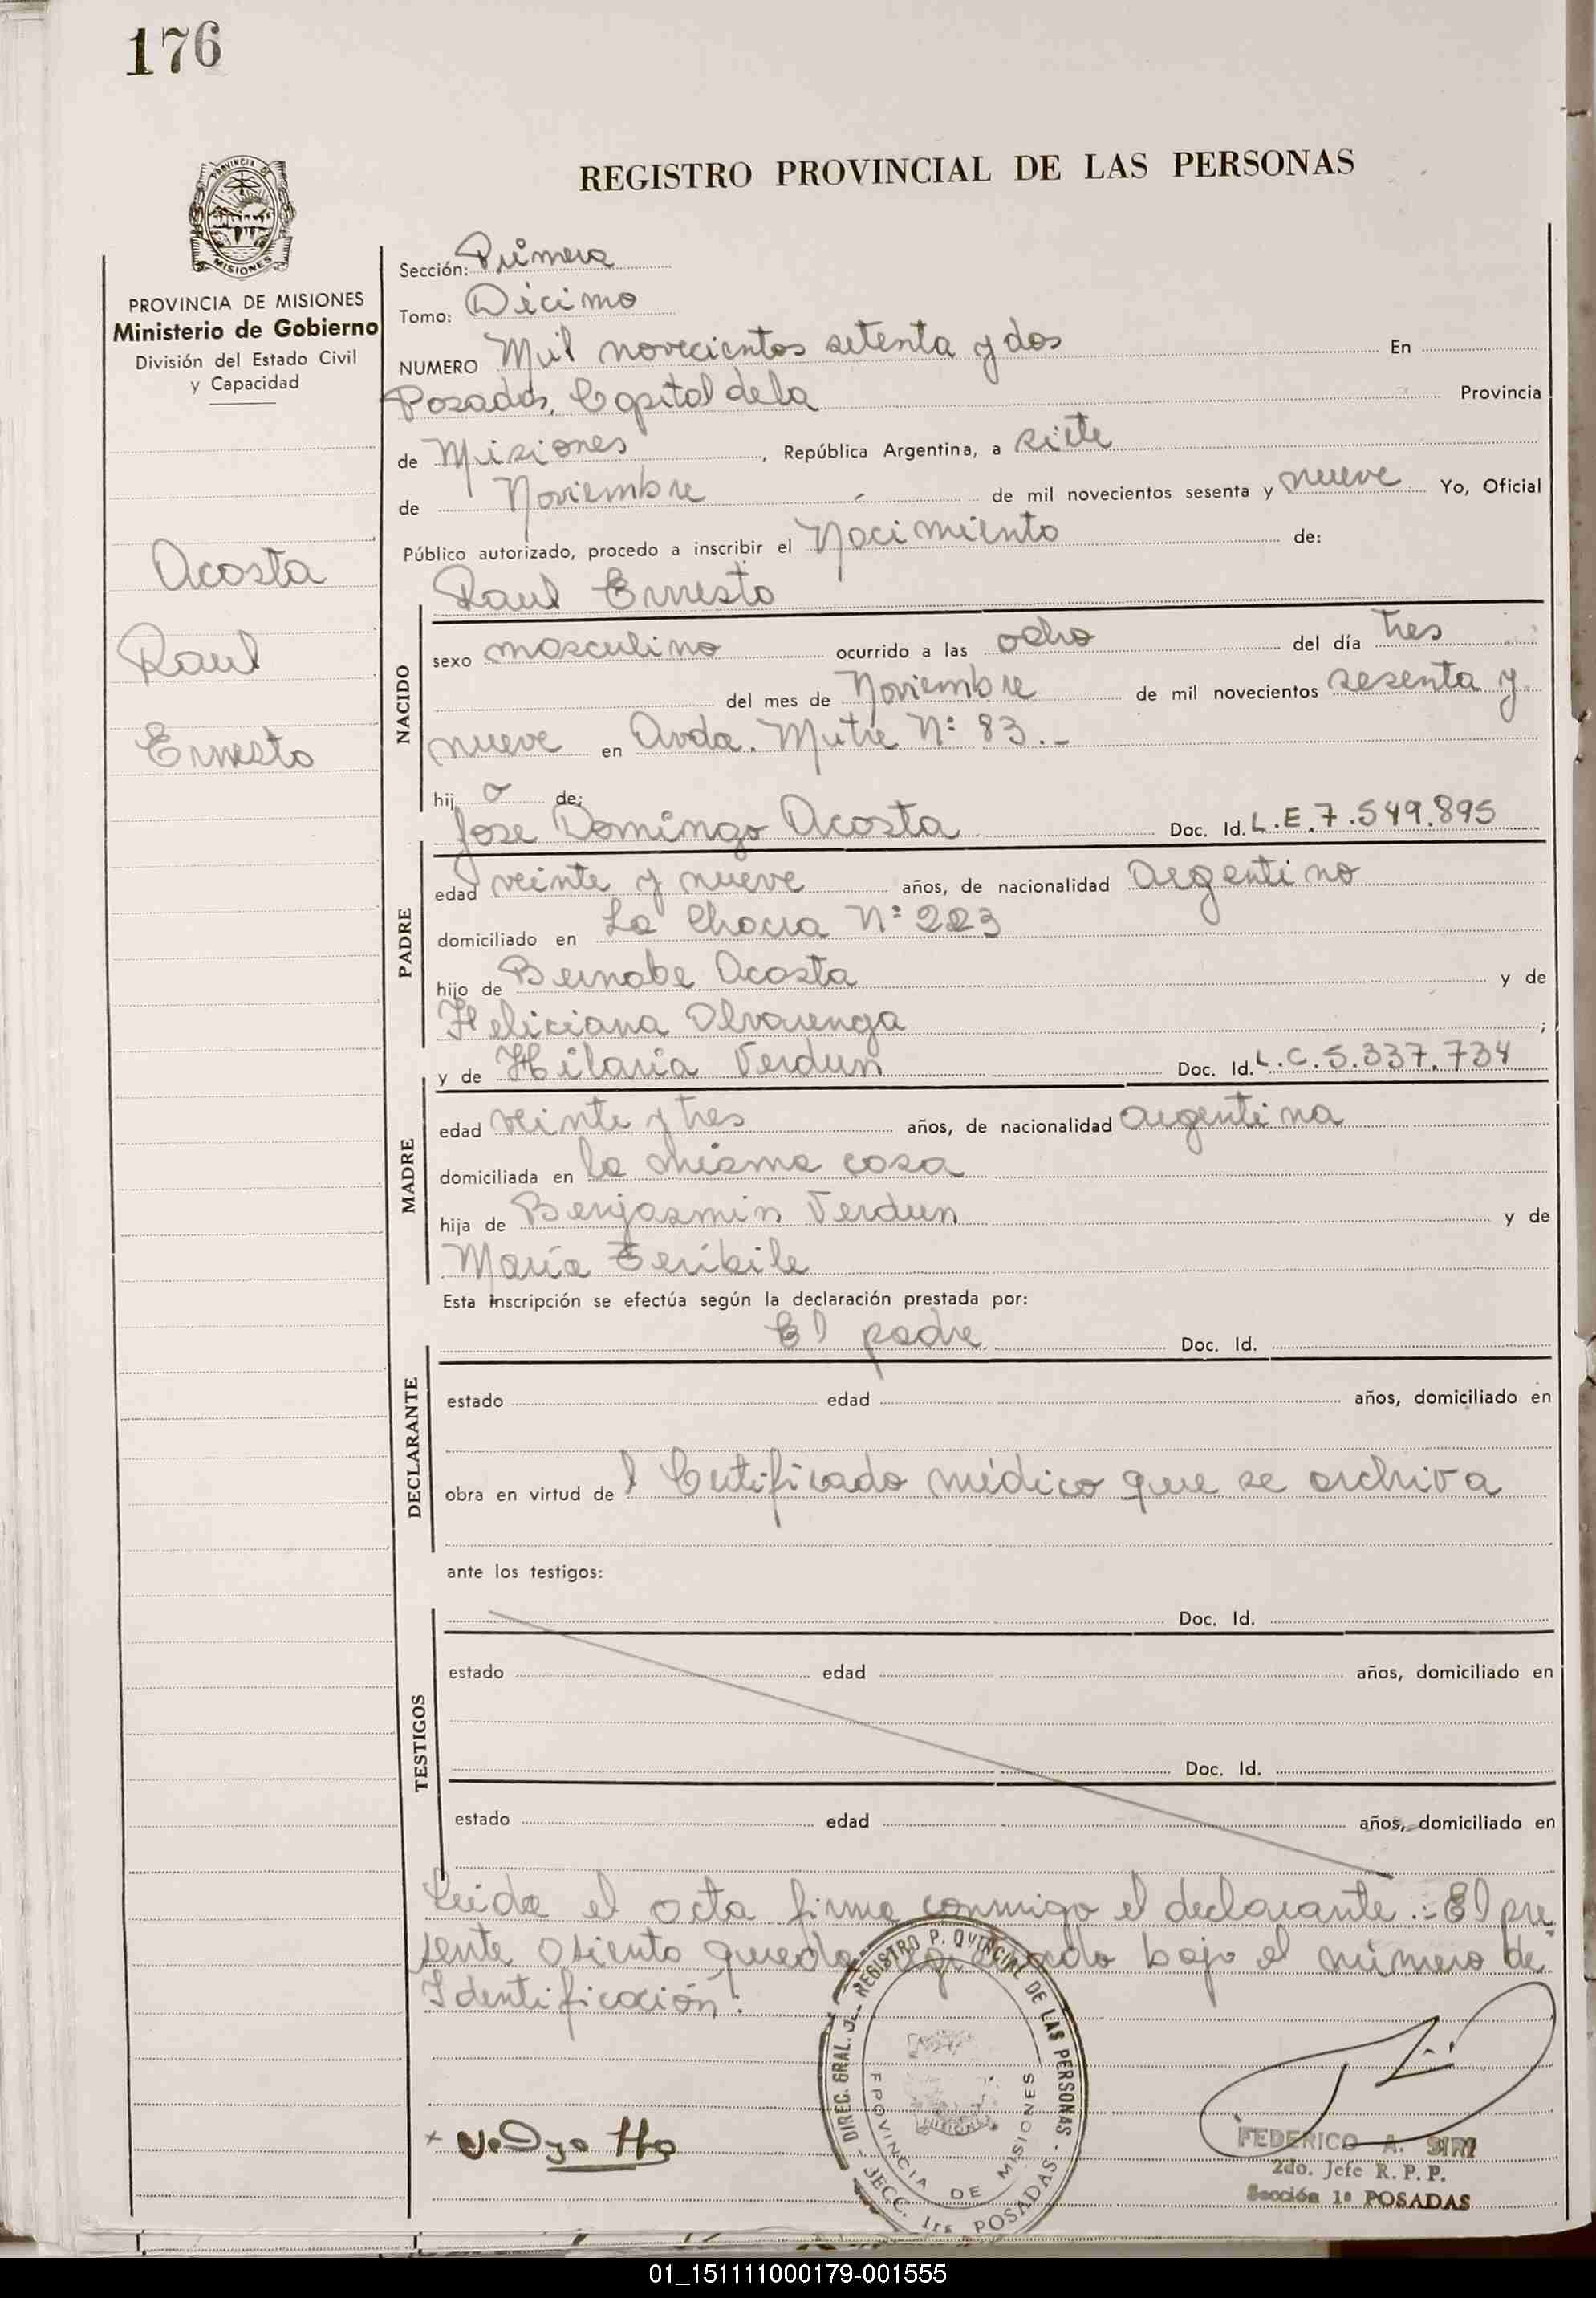 176
PROVINCIA DE
MISIONES
REGISTRO PROVINCIAL DE LAS PERSONAS
PROVINCIA DE MISIONES
Ministerio de Gobierno
División del Estado Civil
y Capacidad
Acosta
Raul
Ernesto
Sección: Primera
Tomo: Décimo
NUMERO Mil novecientos setenta y dos En
Posadas, Capital de la Provincia
de Misiones, República Argentina, a siete
de Noviembre de mil novecientos sesenta y nueve Yo, Oficial
Público autorizado, procedo a inscribir el Nacimiento de:
Raul Ernesto
NACIDO
sexo masculino ocurrido a las ocho del día tres
del mes de Noviembre de mil novecientos sesenta y
nueve en Avda. Mitre Nº 83.-
hij o de:
José Domingo Acosta Doc. Id. L.E.7.549.895
PADRE
edad veinte y nueve años, de nacionalidad Argentino
domiciliado en La Chacra Nº 223
hijo de Bernabe Acosta y de
Feliciana Alvarenga ;
y de Hilaria Verdun Doc. Id. L.C.5.337.734
MADRE
edad veinte y tres años, de nacionalidad argentina
domiciliada en la misma casa
hija de Benjasmin Verdun y de
María
Esta inscripción se efectúa según la declaración prestada por:
El padre Doc. Id.
DECLARANTE
estado edad años, domiciliado en
obra en virtud de l Certificado médico que se archiva
ante los testigos:
Doc. Id.
TESTIGOS
estado edad años, domiciliado en
Doc. Id.
estado edad años, domiciliado en
Leida el acta firma conmigo el declarante.- El pre
sente asiento queda registrado bajo el número de
Identificación:
DIREC. GRAL. REGISTRO PROVINCIAL DE LAS PERSONAS - SECC. 1ra POSADAS -
PROVINCIA DE MISIONES
FEDERICO A. SIRI
2do. Jefe R. P. P.
Sección 1ª POSADAS
01_151111000179-001555